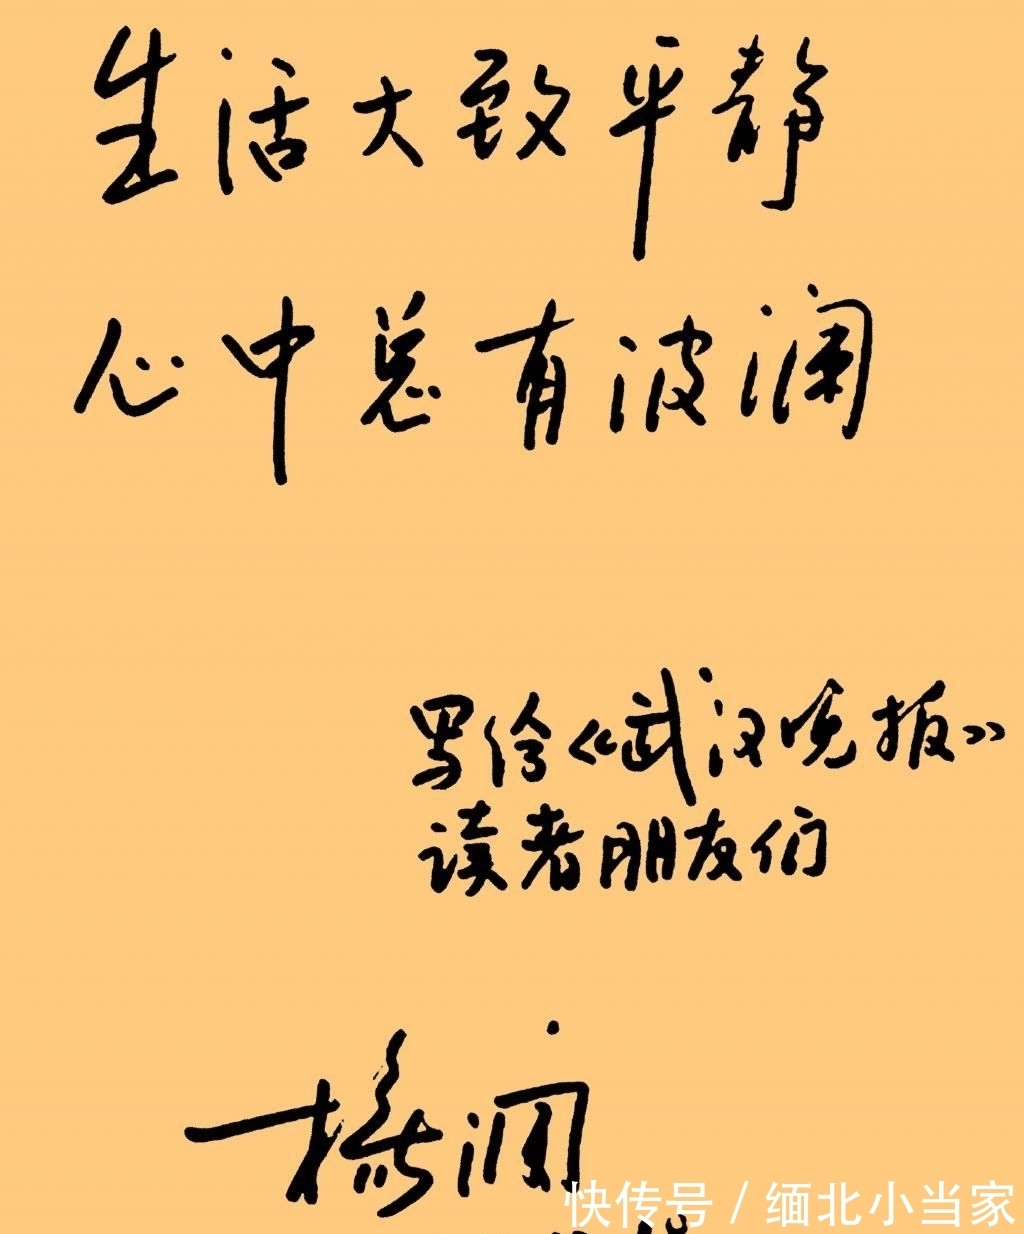 生活大致平静
心中总有波澜
写给《武汉晚报》
读者朋友们
快传号 / 缅北小当家